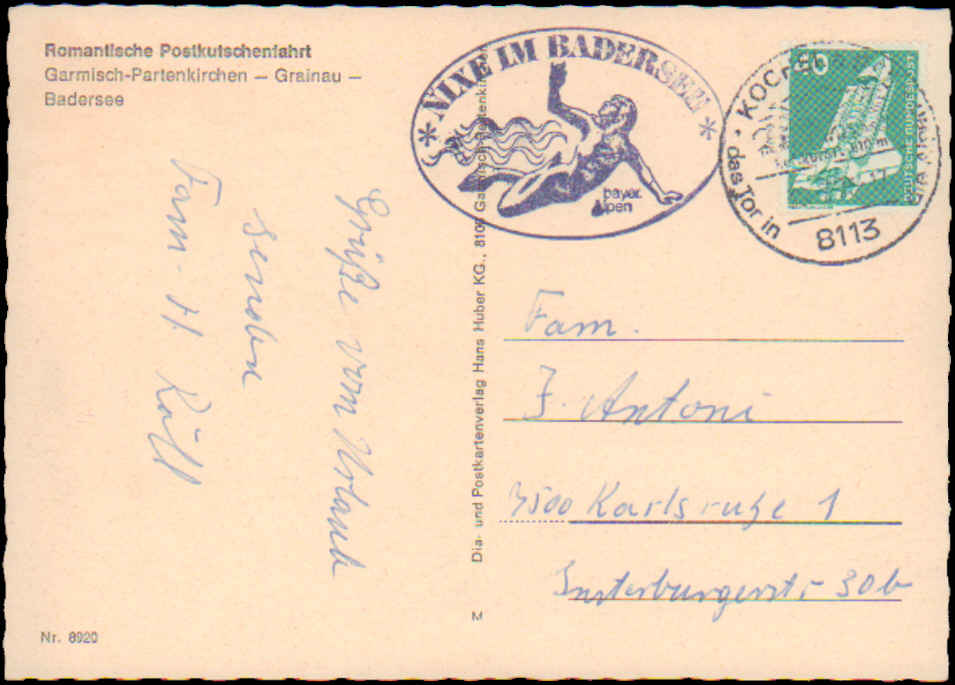 Romantische Postkutschenfahrt
Garmisch-Partenkirchen – Grainau –
Badersee
Grüße vom Urlaub
senden
Fam. H. Röll
Nr. 8920
Dia- und Postkartenverlag Hans Huber KG., 8100 Garmisch-Partenkirchen
M
* NIXE IM BADERSEE *
bayer.
Alpen
das Tor in
8113
DEUTSCHE BUNDESPOST
Fam.
J. Antoni
7500 Karlsruhe 1
Insterburgerstr. 30b